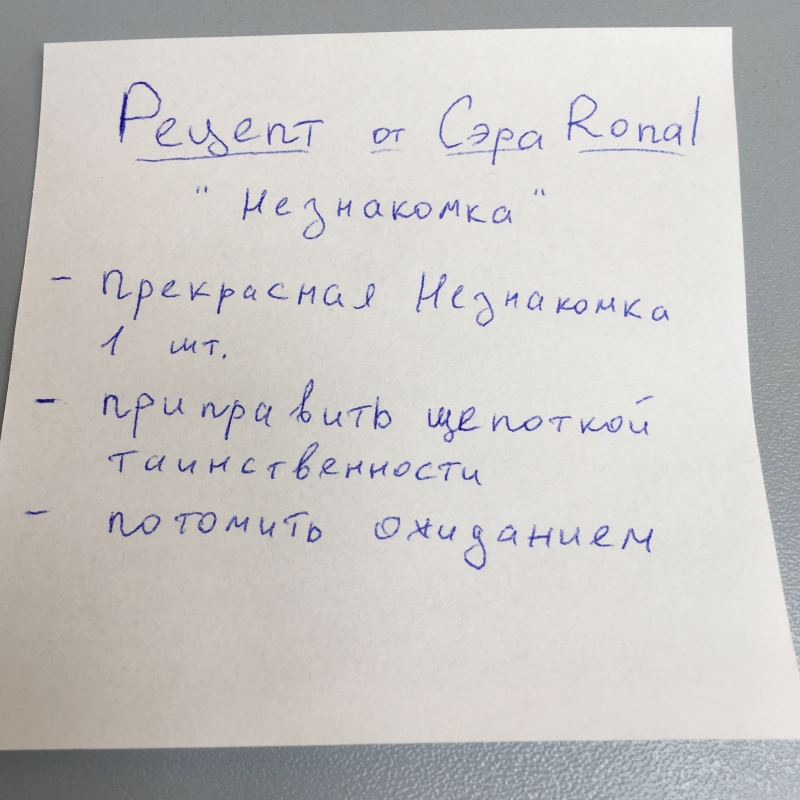 Рецепт от Сэра Ronal
"Незнакомка"
- прекрасная Незнакомка
1 шт.
- приправить щепоткой
таинственности
- потомить ожиданием